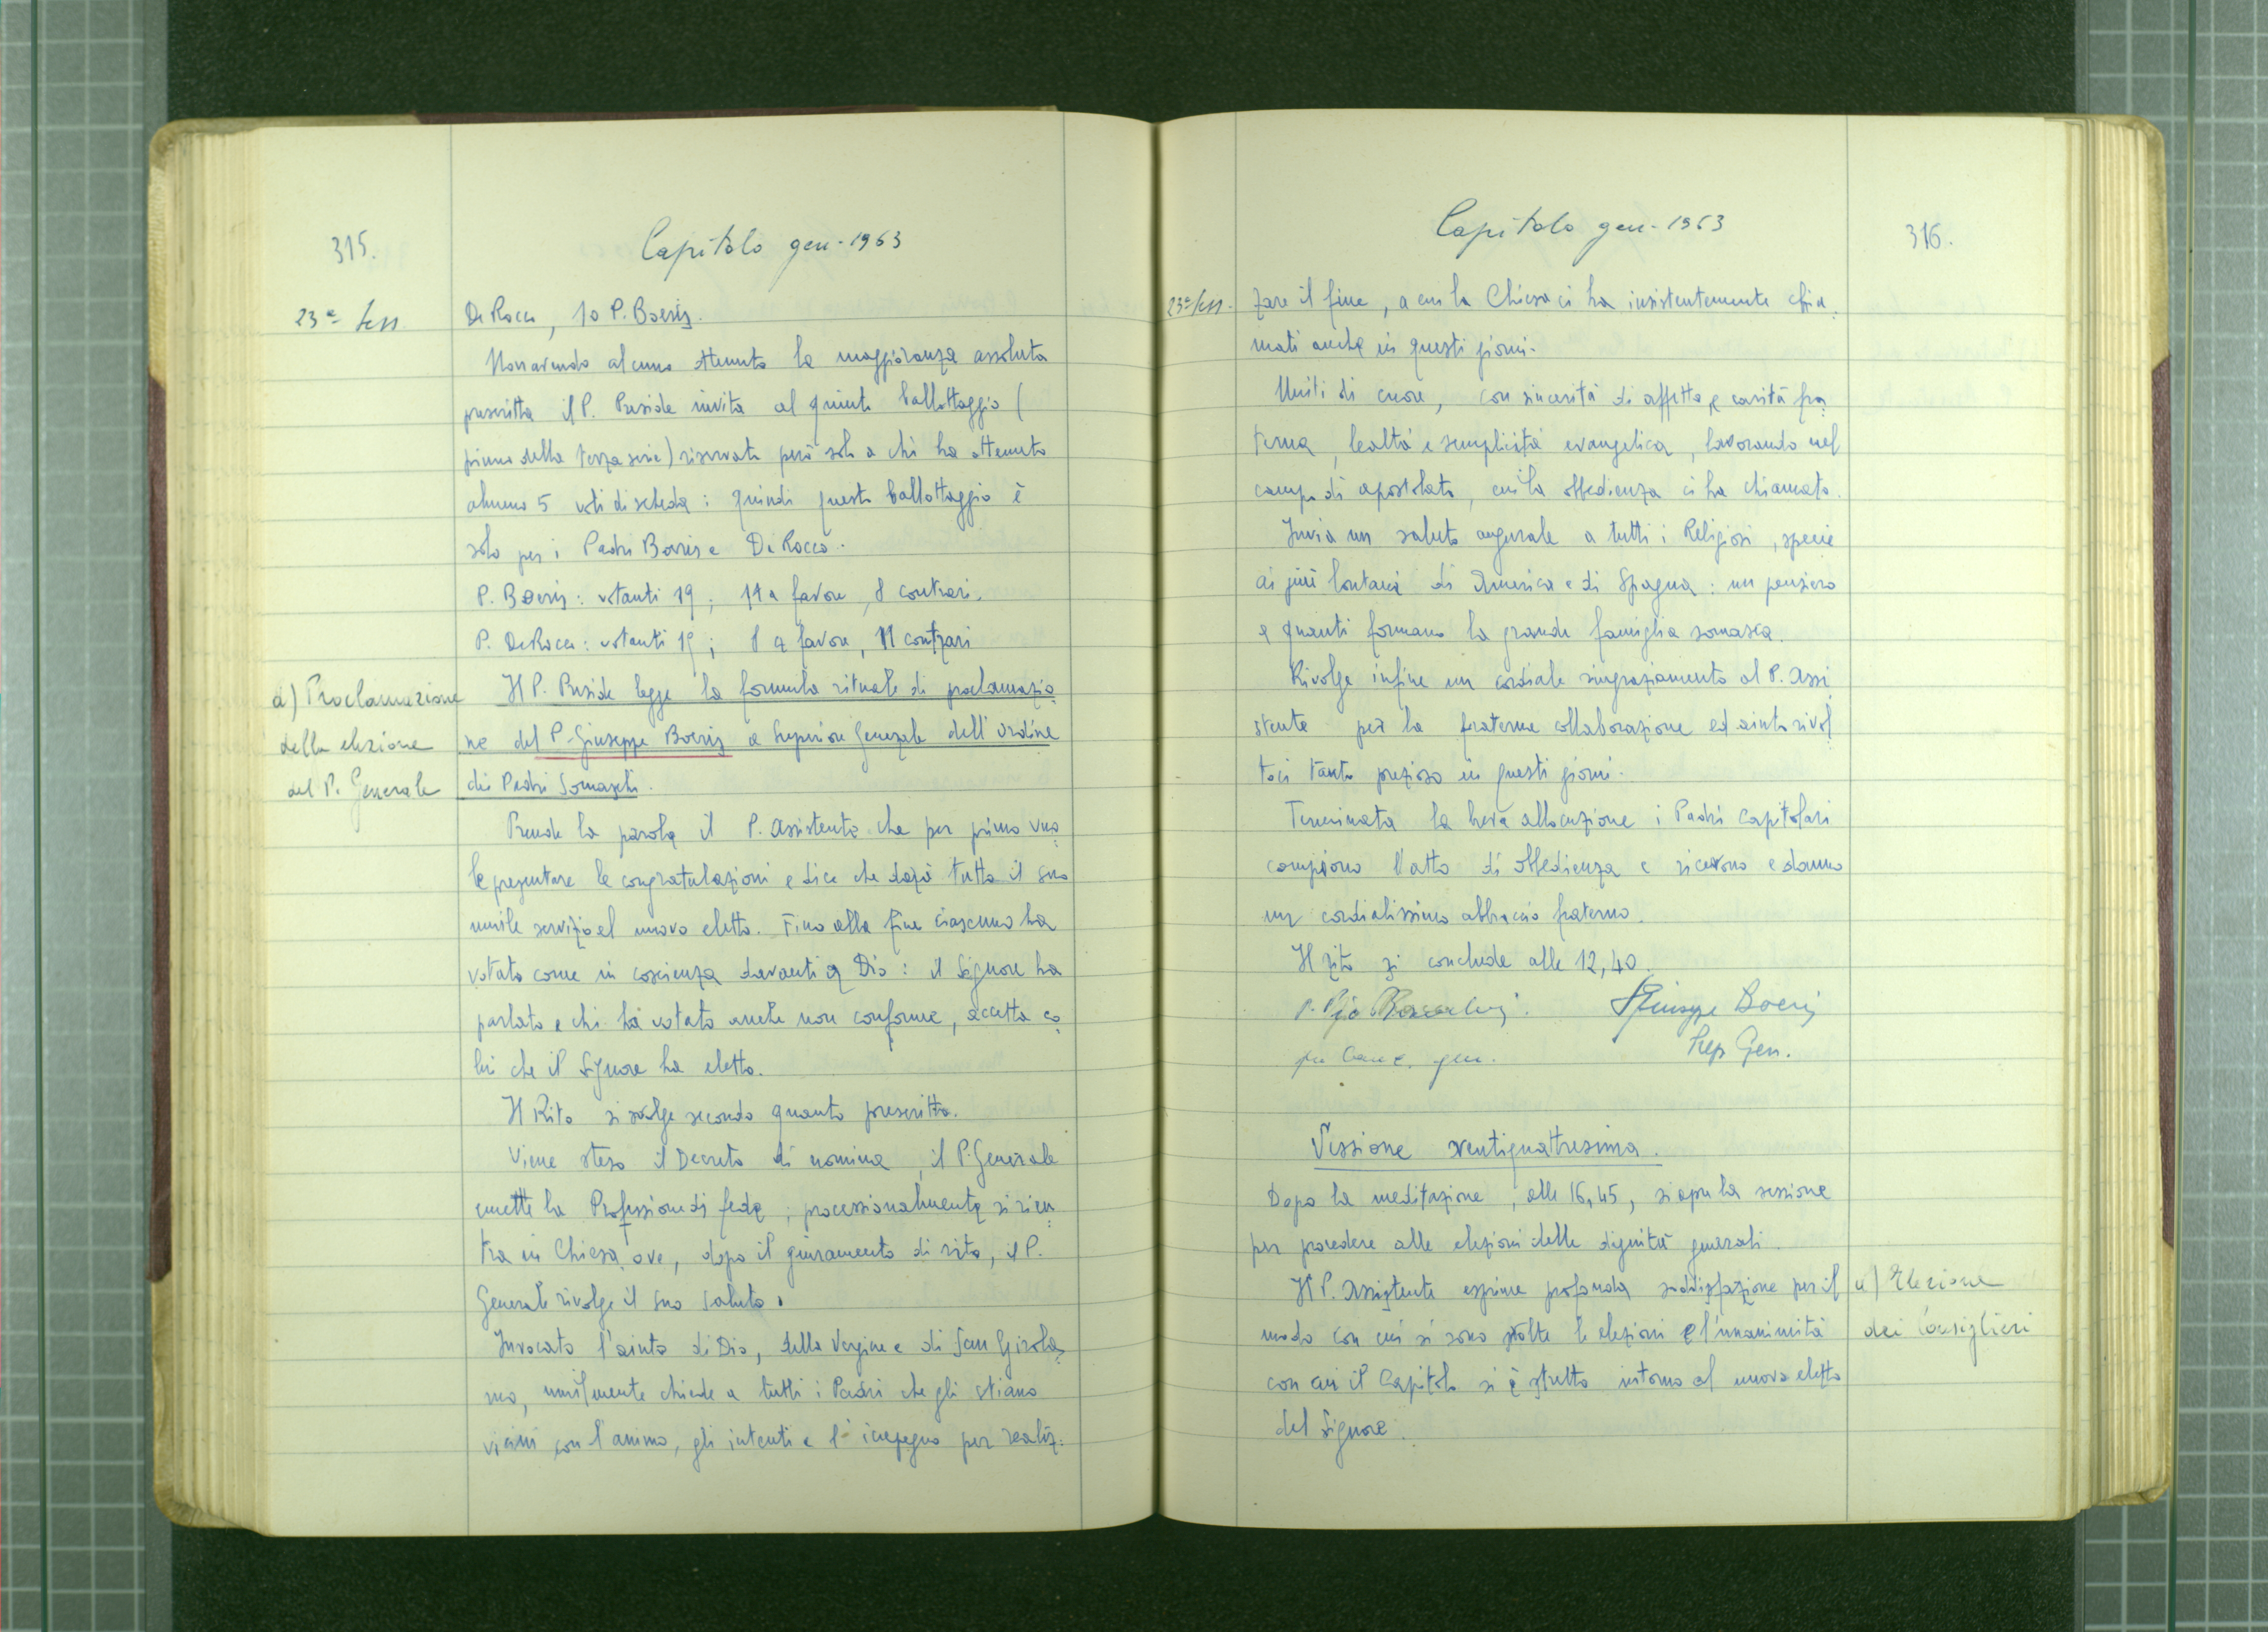 315.
Capitolo gen - 1963
23ª Sess.
De Rocco, 10 P. Boeris.
Non avendo alcuno ottenuto la maggioranza assoluta
prescritta il P. Preside invita al quinto ballottaggio (
primo della terza serie) riservato però solo a chi ha ottenuto
almeno 5 voti di scheda: quindi questo ballottaggio è
solo per i Padri Boeris e De Rocco.
P. Boeris: votanti 19; 11 a favore, 8 contrari.
P. De Rocco: votanti 19; 8 a favore, 11 contrari
a) Proclamazione
della elezione
del P. Generale
Il P. Preside legge la formula rituale di proclamazio
ne del P. Giuseppe Boeris a Superiore Generale dell'Ordine
dei Padri Somaschi.
Prende la parola il P. Assistente che per primo vuo
le presentare le congratulazioni e dice che darà tutto il suo
umile servizio al nuovo eletto. Fino alla fine ciascuno ha
votato come in coscienza davanti a Dio: il Signore ha
parlato e chi ha votato anche non conforme, accetta co
lui che il Signore ha eletto.
Il Rito si svolge secondo quanto prescritto.
Viene steso il Decreto di nomina, il P. Generale
emette la Professione di fede; processionalmente si rien
tra in Chiesa ove, dopo il giuramento di rito, il P.
Generale rivolge il suo saluto.
Invocato l'aiuto di Dio, della Vergine e di San Girola
mo, umilmente chiede a tutti i Padri che gli stiano
vicini con l'animo, gli intenti e l'impegno per realiz:
Capitolo gen - 1963
316.
23ª Sess.
zare il fine, a cui la Chiesa ci ha insistentemente chia
mati anche in questi giorni.
Uniti di cuore, con sincerità di affetto e carità fra
terna, lealtà e semplicità evangelica, lavorando nel
campo di apostolato, cui la obbedienza ci ha chiamato.
Invia un saluto augurale a tutti i Religiosi, specie
ai più lontani di America e di Spagna: un pensiero
a quanti formano la grande famiglia somasca.
Rivolge infine un cordiale ringraziamento al P. Assi
stente per la fraterna collaborazione ed aiuto rivol
toci tanto prezioso in questi giorni.
Terminata la breve allocuzione i Padri Capitolari
compiono l'atto di obbedienza e ricevono e danno
un cordialissimo abbraccio fraterno.
Il rito si conclude alle 12,40.
P. Pio
P. Giuseppe Boeris
gen.
Prep Gen.
Sessione ventiquattresima.
Dopo la meditazione, alle 16,45, si apre la sessione
per procedere alle elezioni delle dignità generali.
Il P. Assistente esprime profonda soddisfazione per il
modo con cui si sono svolte le elezioni e l'unanimità
con cui il Capitolo si è stretto intorno al nuovo eletto
del Signore.
a) Elezione
dei Consiglieri